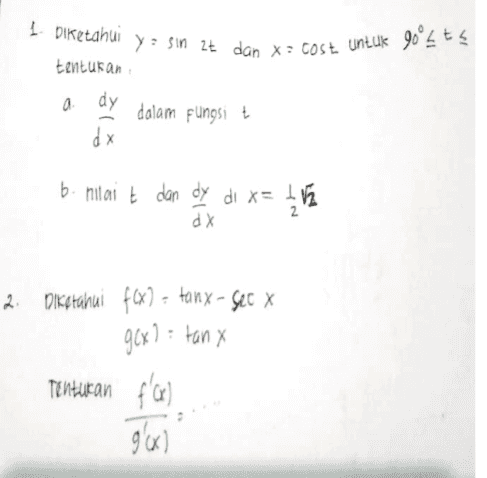 1. Diketahui y = sin 2t dan x = cost untuk 90° ≤ t ≤
tentukan,
a. dy/dx dalam fungsi t
b. nilai t dan dy/dx di x = 1/2 √2
2. Diketahui f(x) = tan x - sec x
g(x) = tan x
Tentukan f'(x)/g'(x) = ....